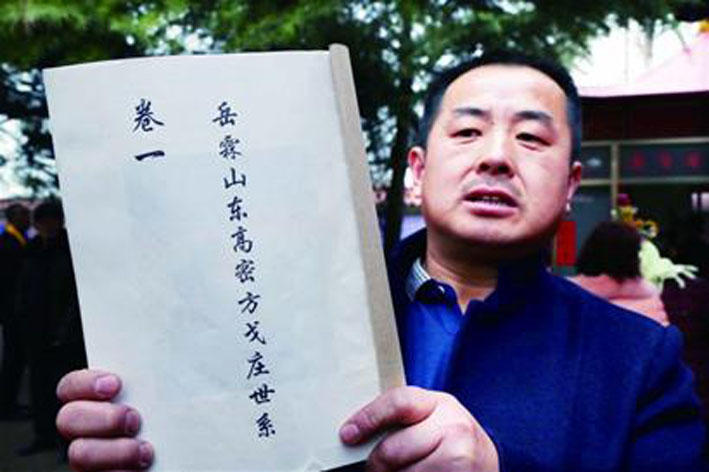 岳霖山东高密方戈庄世系
卷一